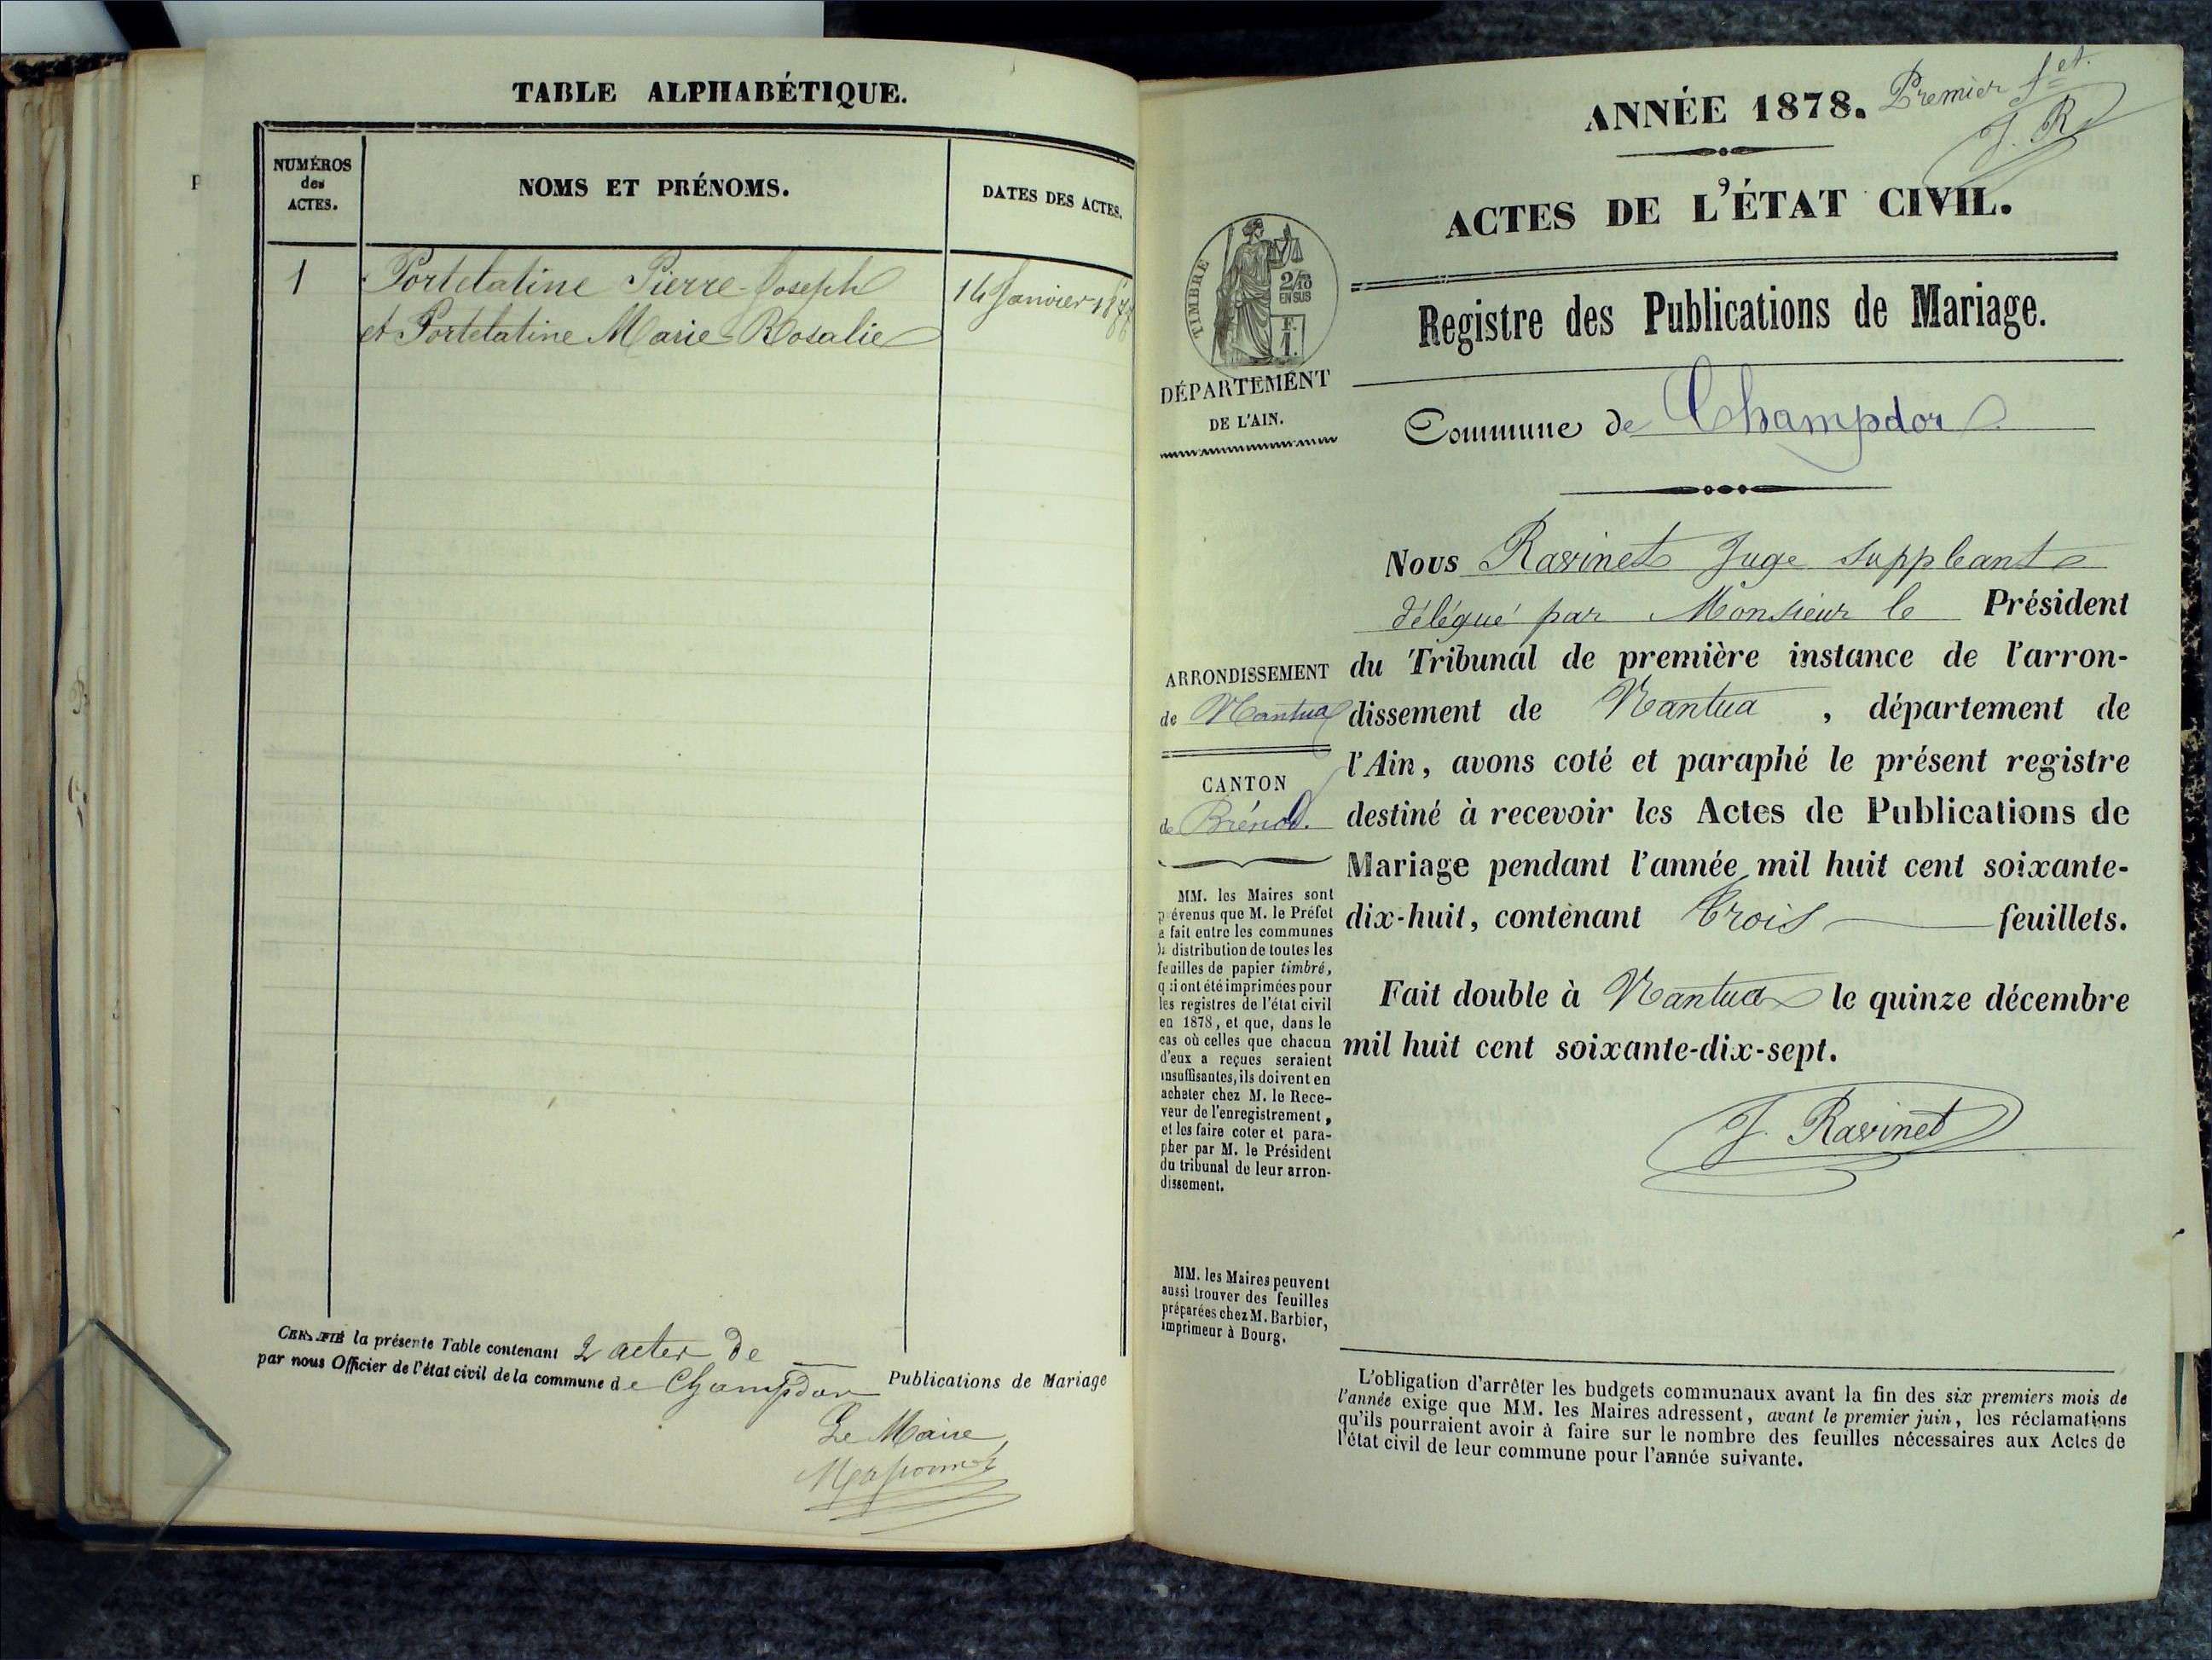 TABLE ALPHABÉTIQUE.
NUMÉROS
des
ACTES.
NOMS ET PRÉNOMS.
DATES DES ACTES.
1
Portelatine Pierre-Joseph
14 Janvier
et Portelatine Marie-Rosalie
la présente Table contenant 2 actes de
Publications de Mariage
par nous Officier de l'état civil de la commune de Champdor
Le Maire
ANNÉE 1878.
Premier fet.
J. R
ACTES DE L'ÉTAT CIVIL.
TIMBRE
2/10
EN SUS
F.
1.
Registre des Publications de Mariage.
DÉPARTEMENT
DE L'AIN.
Commune de Champdor
Nous Ravinet Juge suppléant
délégué par Monsieur le Président
du Tribunal de première instance de l'arron-
dissement de Nantua, département de
l'Ain, avons coté et paraphé le présent registre
destiné à recevoir les Actes de Publications de
Mariage pendant l'année mil huit cent soixante-
dix-huit, contenant trois feuillets.
Fait double à Nantua le quinze décembre
mil huit cent soixante-dix-sept.
J. Ravinet
ARRONDISSEMENT
de Nantua
CANTON
de Brénod.
MM. les Maires sont
prévenus que M. le Préfet
a fait entre les communes
la distribution de toutes les
feuilles de papier timbré,
qui ont été imprimées pour
les registres de l'état civil
en 1878, et que, dans le
cas où celles que chacun
d'eux a reçues seraient
insuffisantes, ils doivent en
acheter chez M. le Rece-
veur de l'enregistrement,
et les faire coter et para-
pher par M. le Président
du tribunal de leur arron-
dissement.
MM. les Maires peuvent
aussi trouver des feuilles
préparées chez M. Barbier,
imprimeur à Bourg.
L'obligation d'arrêter les budgets communaux avant la fin des six premiers mois de
l'année exige que MM. les Maires adressent, avant le premier juin, les réclamations
qu'ils pourraient avoir à faire sur le nombre des feuilles nécessaires aux Actes de
l'état civil de leur commune pour l'année suivante.